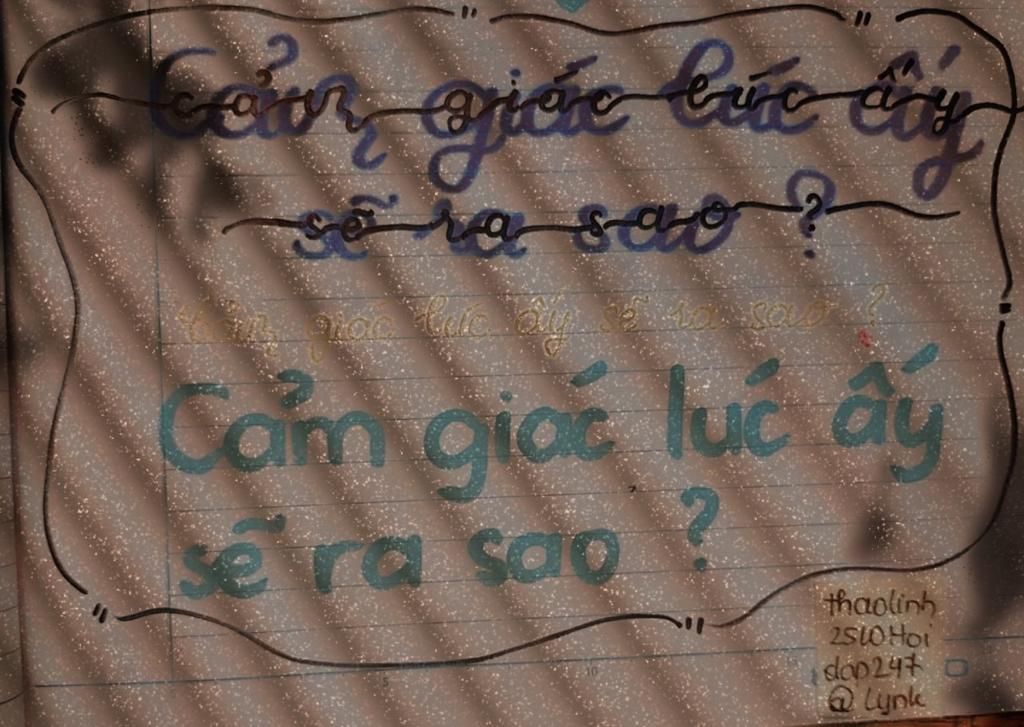 Cảm giác lúc ấy
sẽ ra sao ?
Cảm giác lúc ấy sẽ ra sao ?
Cảm giác lúc ấy
sẽ ra sao ?
thaolinh
@ Lynk